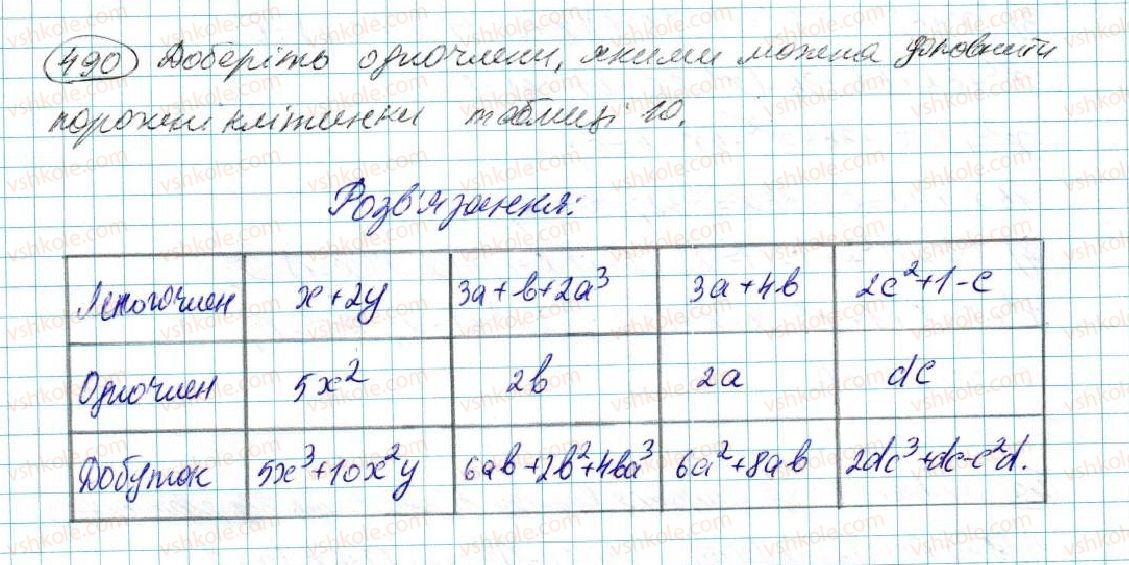 490 Доберіть одночлени, якими можна доповнити
порожні клітинки таблиці 10.
Розв'язання:
Многочлен x+2y 3a+b+2a³ 3a+4b 2c²+1-c
Одночлен 5x² 2b 2a dc
Добуток 5x³+10x²y 6ab+2b²+4ba³ 6a²+8ab 2dc³+dc-c²d.